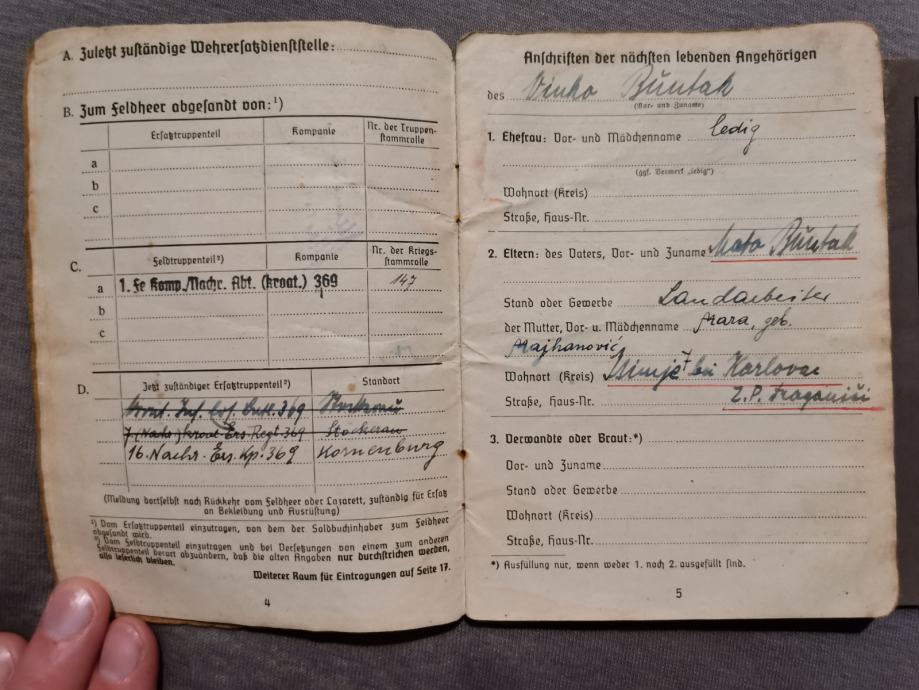 A. Zuletzt zuständige Wehrersatzdienststelle:
B. Zum Feldheer abgesandt von:¹)
Ersatztruppenteil Kompanie Nr. der Truppen-
stammrolle
a
b
c
C. Feldtruppenteil²) Kompanie Nr. der Kriegs-
stammrolle
a 1. Fe Komp./Nachr. Abt. (kroat.) 369 147
b
c
D. Jetzt zuständiger Ersatztruppenteil²) Standort
Inf. 369
7 (Nachr.) kroat. Ers. Regt. 369 Stockerau
16. Nachr. Ers. Kp. 369 Kornenburg
(Meldung dortselbst nach Rückkehr vom Feldheer oder Lazarett, zuständig für Ersatz
an Bekleidung und Ausrüstung)
¹) Vom Ersatztruppenteil einzutragen, von dem der Soldbuchinhaber zum Feldheer
abgesandt wird.
²) Vom Feldtruppenteil einzutragen und bei Versetzungen von einem zum anderen
Feldtruppenteil derart abzuändern, daß die alten Angaben nur durchstrichen werden,
also leserlich bleiben.
Weiterer Raum für Eintragungen auf Seite 17.
4
Anschriften der nächsten lebenden Angehörigen
des Vinko Buntak
(Vor- und Zuname)
1. Ehefrau: Vor- und Mädchenname ledig
(ggf. Vermerk „ledig")
Wohnort (Kreis)
Straße, Haus-Nr.
2. Eltern: des Vaters, Vor- und Zuname Mato Buntak
Stand oder Gewerbe Landarbeiter
der Mutter, Vor- u. Mädchenname Mara, geb.
Majhanović
Wohnort (Kreis) bei Karlovac
Straße, Haus-Nr. Z.P. Draganići
3. Verwandte oder Braut:*)
Vor- und Zuname
Stand oder Gewerbe
Wohnort (Kreis)
Straße, Haus-Nr.
*) Ausfüllung nur, wenn weder 1. noch 2. ausgefüllt sind.
5